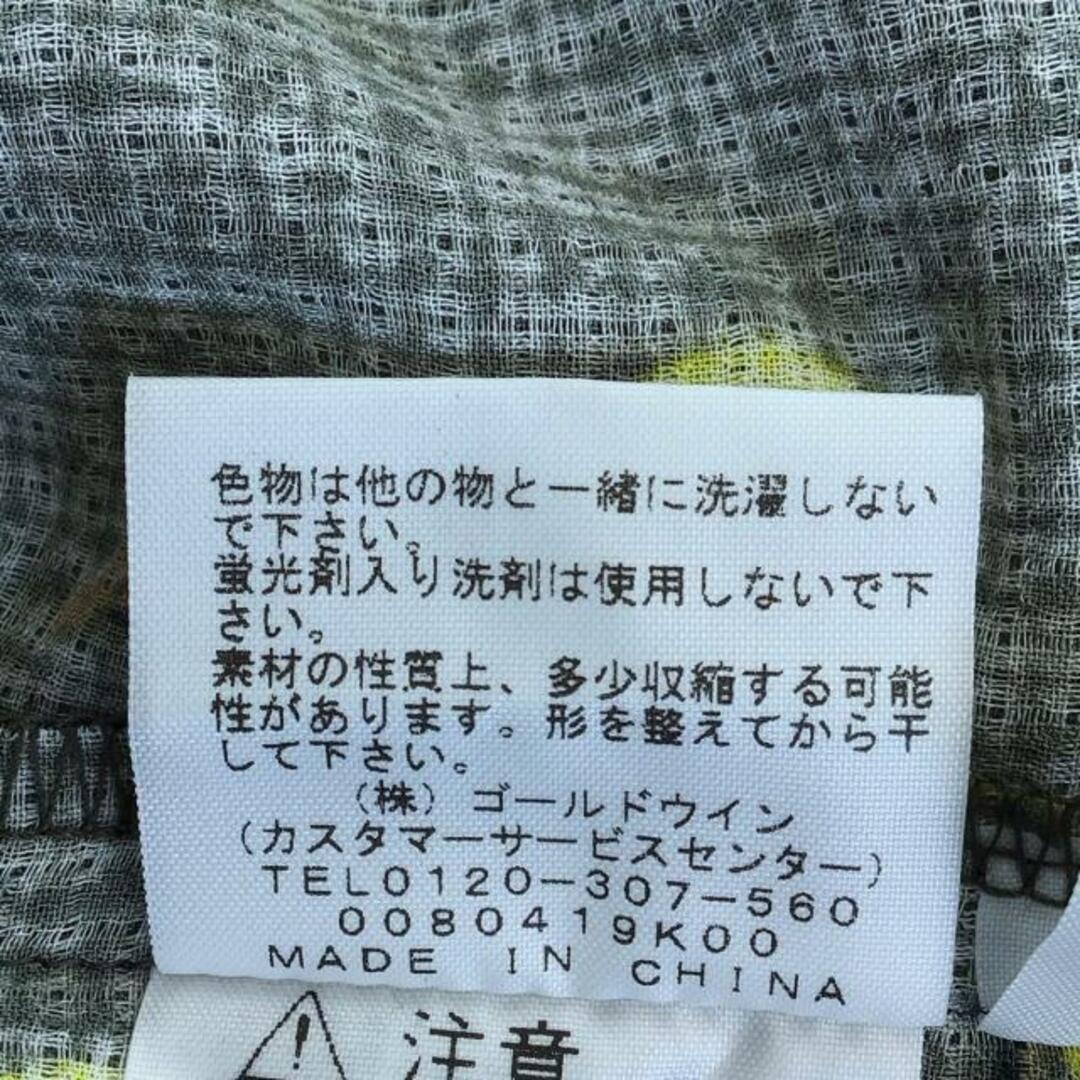 色物は他の物と一緒に洗濯しない
で下さい。
蛍光剤入り洗剤は使用しないで下
さい。
素材の性質上、多少収縮する可能
性があります。形を整えてから干
して下さい。
(株)ゴールドウイン
(カスタマーサービスセンター)
TEL0120-307-560
0080419K00
MADE IN CHINA
注意